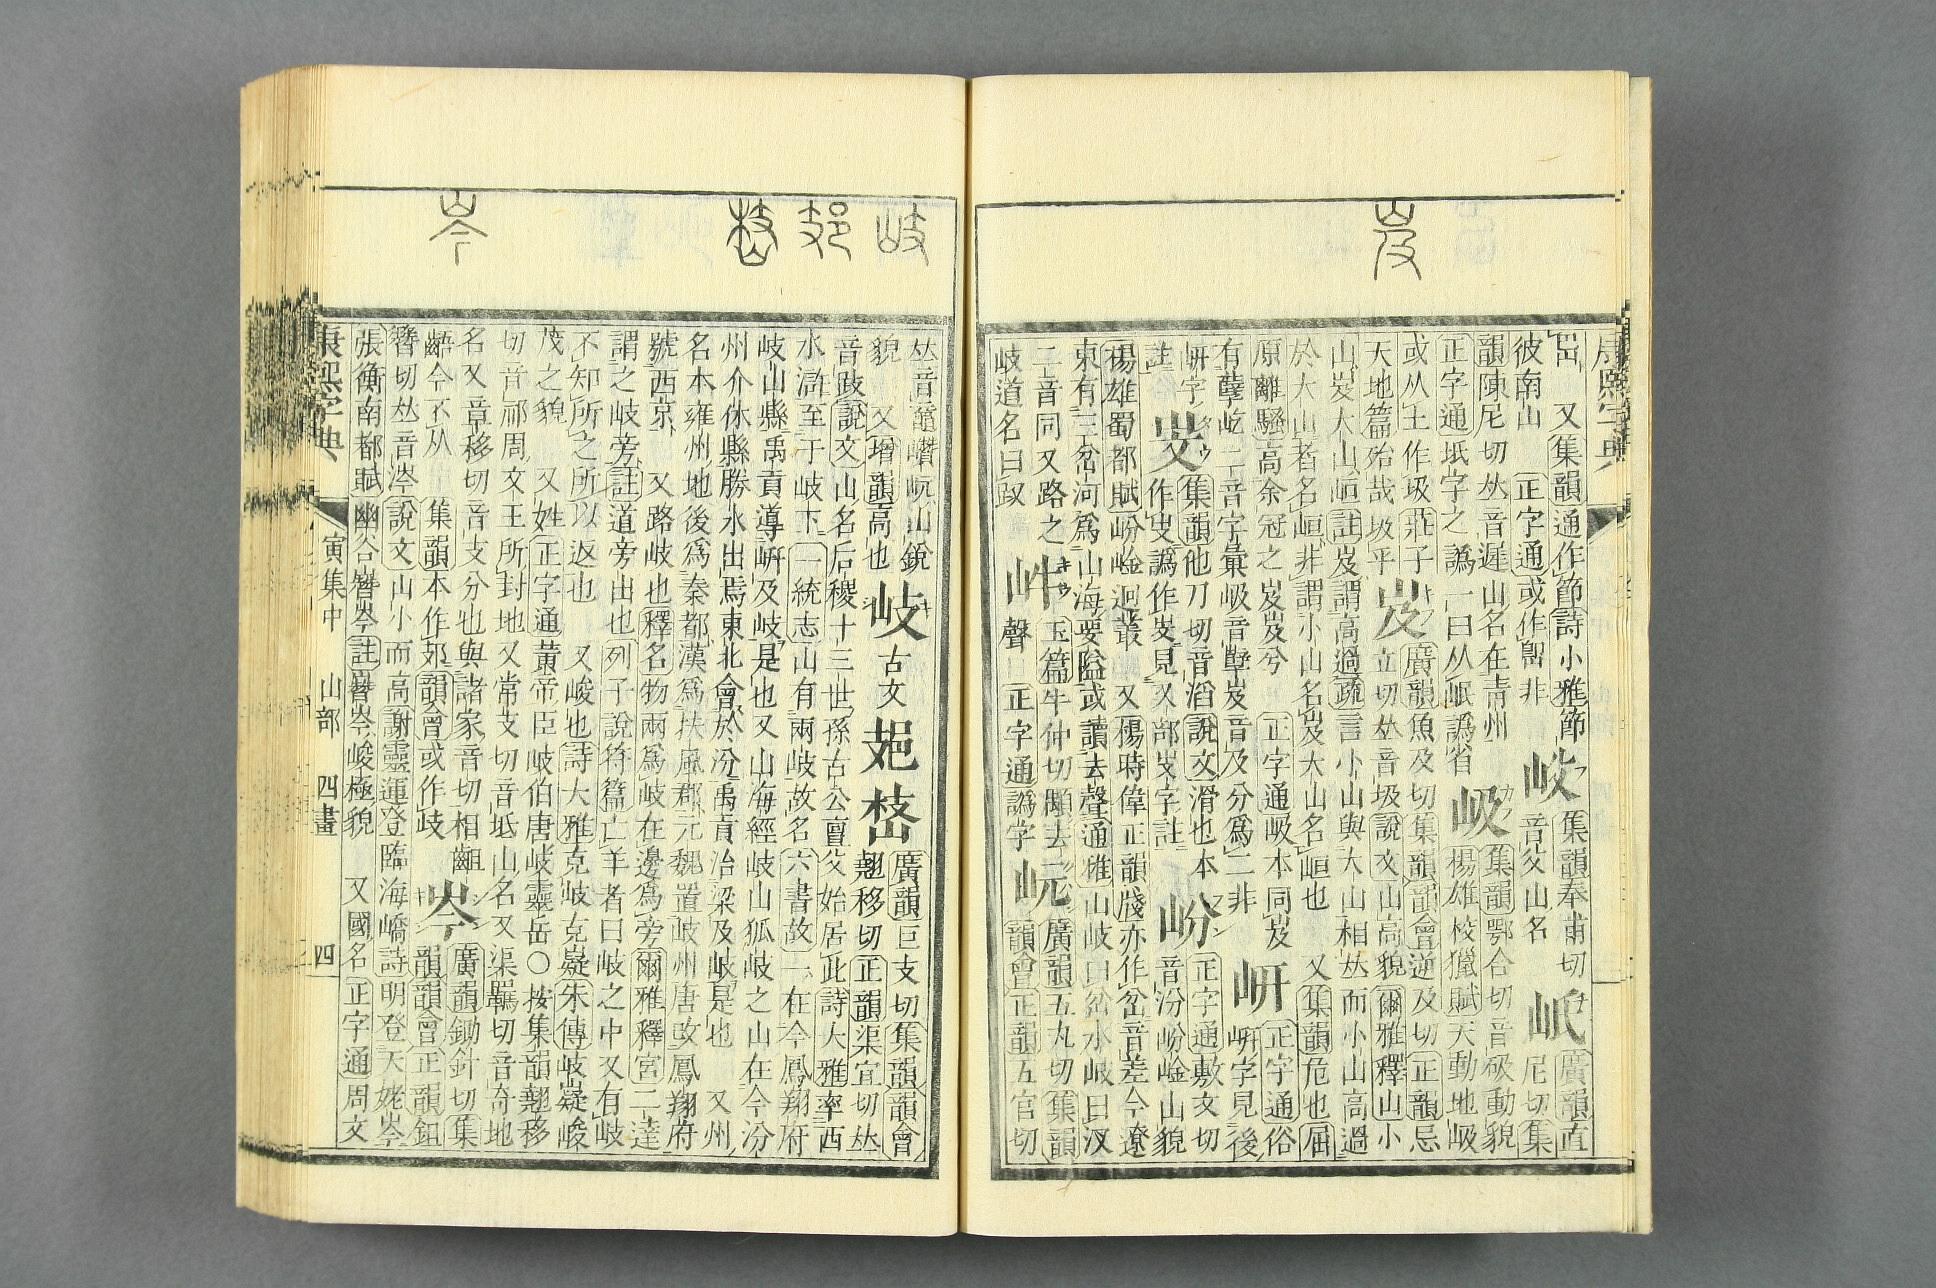 岌
康熙字典
又集韻通作節詩小雅節
彼南山 正字通或作㠍非
集韻奉甫切
音父山名
岻
廣韻直
尼切集
韻陳尼切𠀤音遲山名在青州
正字通坻字之譌一曰从岷譌省
岋
集韻鄂合切音㕎動貌
揚雄校獵賦天動地岋
或从土作圾莊子
天地篇殆哉圾乎
岌
廣韻魚及切集韻韻會逆及切正韻忌
立切𠀤音圾說文山高貌爾雅釋山小
山岌大山峘註岌謂高過疏言小山與大山相𠀤而小山高過
於大山者名峘非謂小山名岌大山名峘也 又集韻危也屈
原離騷高余冠之岌岌兮 正字通岋本同岌
有孽屹二音字彙岋音孽岌音及分爲二非
岍
正字通俗
岍字見後
岍字
註
集韻他刀切音滔說文滑也本
岎
正字通敷文切
音汾岎崯山貌
揚雄蜀都賦岎崯迴叢 又楊時偉正韻牋亦作岔音差今遼
東有三岔河爲山海要隘或讀去聲通雅山岐曰岔水岐曰汊
二音同又路之
岐道名曰㕚
玉篇牛仲切顒去
聲 正字通譌字
岏
廣韻五丸切集韻
韻會正韻五官切
岐
岑
𠀤音㟴巑岏山銳
貌 又增韻高也
岐
古文
廣韻巨支切集韻韻會
翹移切正韻渠宜切𠀤
音跂說文山名后稷十三世孫古公亶父始居此詩大雅率西
水滸至于岐下一統志山有兩岐故名六書故一在今鳳翔府
岐山縣禹貢導岍及岐是也又山海經岐山狐岐之山在今汾
州介休縣勝水出焉東北會於汾禹貢治梁及岐是也 又州
名本雍州地後爲秦都漢爲扶風郡元魏置岐州唐攺鳳翔府
號西京 又路岐也釋名物兩爲岐在邊爲旁爾雅釋宮二達
謂之岐旁註道旁出也列子說符篇亡羊者曰岐之中又有岐
不知所之所以返也 又峻也詩大雅克岐克嶷朱傳岐嶷峻
茂之貌 又姓正字通黃帝臣岐伯唐岐靈岳○按集韻翹移
切音祁周文王所封地又常支切音坻山名又渠羈切音奇地
名又章移切音支分也與諸家音切相齟
齬今不从 集韻本作郊韻會或作歧
岑
廣韻鋤針切集
韻韻會正韻鉏
簪切𠀤音涔說文山小而高謝靈運登臨海嶠詩明登天姥岑
張衡南都賦幽谷嶜岑註嶜岑峻極貌 又國名正字通周文
康熙字典 寅集中 山部 四畫 四